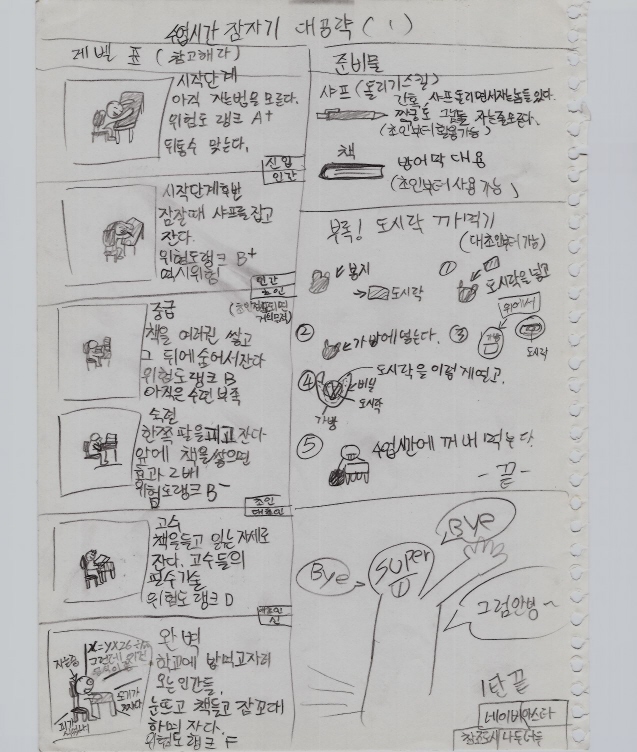 4엽시가 잠자기 대공략 (1)
레벨 표 (참고해라)
시작단계
아직 자는법을 모른다.
위험도 랭크 A+
뒤통수 맞는다.
신입
인간
시작단계후반
잠잘때 샤프를 잡고
잔다.
위험도랭크 B+
역시위험
인간
초인
중급
책을 여러권 쌓고
그 뒤에 숨어서잔다
위험도랭크 B
아직은 수련 부족
숙련
한쪽 팔을 피고 잔다
앞에 책을 쌓으면
효과 2배
위험도랭크 B-
초인
대초인
고수
책을들고 읽는자세로
잔다. 고수들의
필수기술
위험도 랭크 D
대초인
신
완벽
학교에 밥먹고자러
오는인간들.
눈뜨고 책들고 잠꼬대
하며 자다.
위험도랭크 F
자는중
준비물
샤프 (돌리기스킬)
간혹, 샤프돌리면서자는놈들있다.
(초인부터활용가능)
책
방어막 대용
(초인부터 사용 가능)
부록! 도시락 까먹기
(대초인부터 가능)
봉지
도시락
①
도시락을 넣고
②
가방에 넣는다.
③
위에서
가방
도시락
④
도시락을 이렇게연고,
비닐
도시락
가방
⑤
4엽시간에 꺼내 먹는다
-끝-
Bye
Bye
super
그럼안녕~
1탄 끝